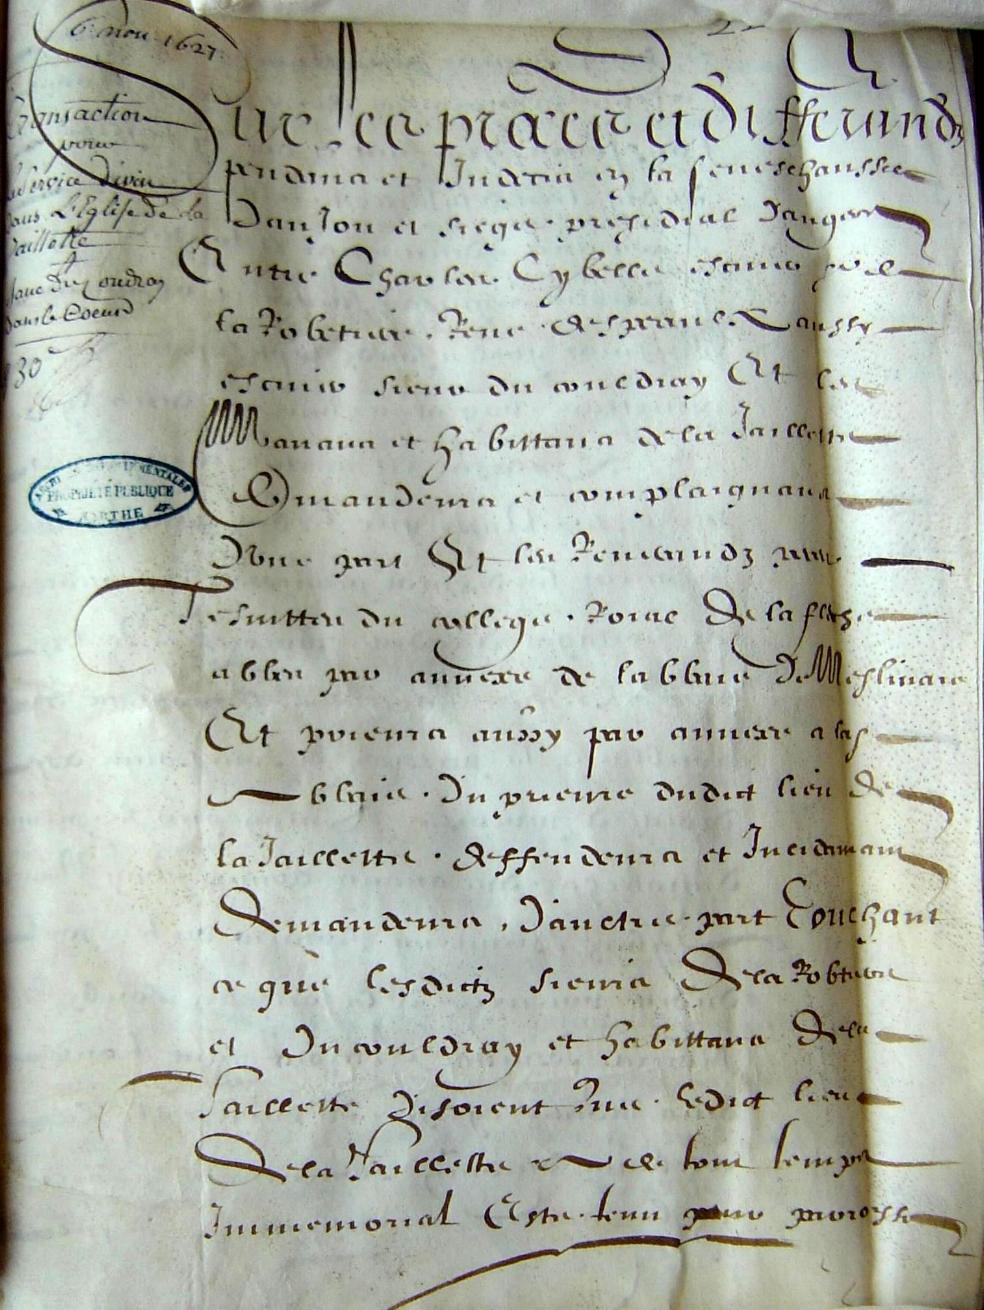 6 nou. 1627
Transaction
pour
le service divin
dans L'Eglise de la
Jaillette
dans le Coeur
30
ARCHIVES DEPARTEMENTALES
PROPRIÉTÉ PUBLIQUE
SARTHE
22
Sur les proces et differandz
pendens et Indecis en la seneschaussee
Danjou et siege presidial Dangers
Entre Charles Cybelle escuier sr de
la Robterie Rene despeaulx aussy
escuier sieur du couldray Et les
Manans et habittans de la Jaillette
Demandeurs et complaignans
Dune part Et les Reuerandz peres
Jesuittes du college Roial de la fleche
abbes par annexe de labbaie de Meslinais
Et prieurs aussy par annexe a lad
abbaie Du prieure dudict lieu de
la Jaillette deffendeurs et Incidamant
Demandeurs Daultre part Touchant
ce que lesdictz sieurs De la Robterie
et Du couldray et habittans De la
Jaillette Disoient Que ledict lieu
De la Jaillette a de tout temps
Immemorial Este tenu pour paroisse